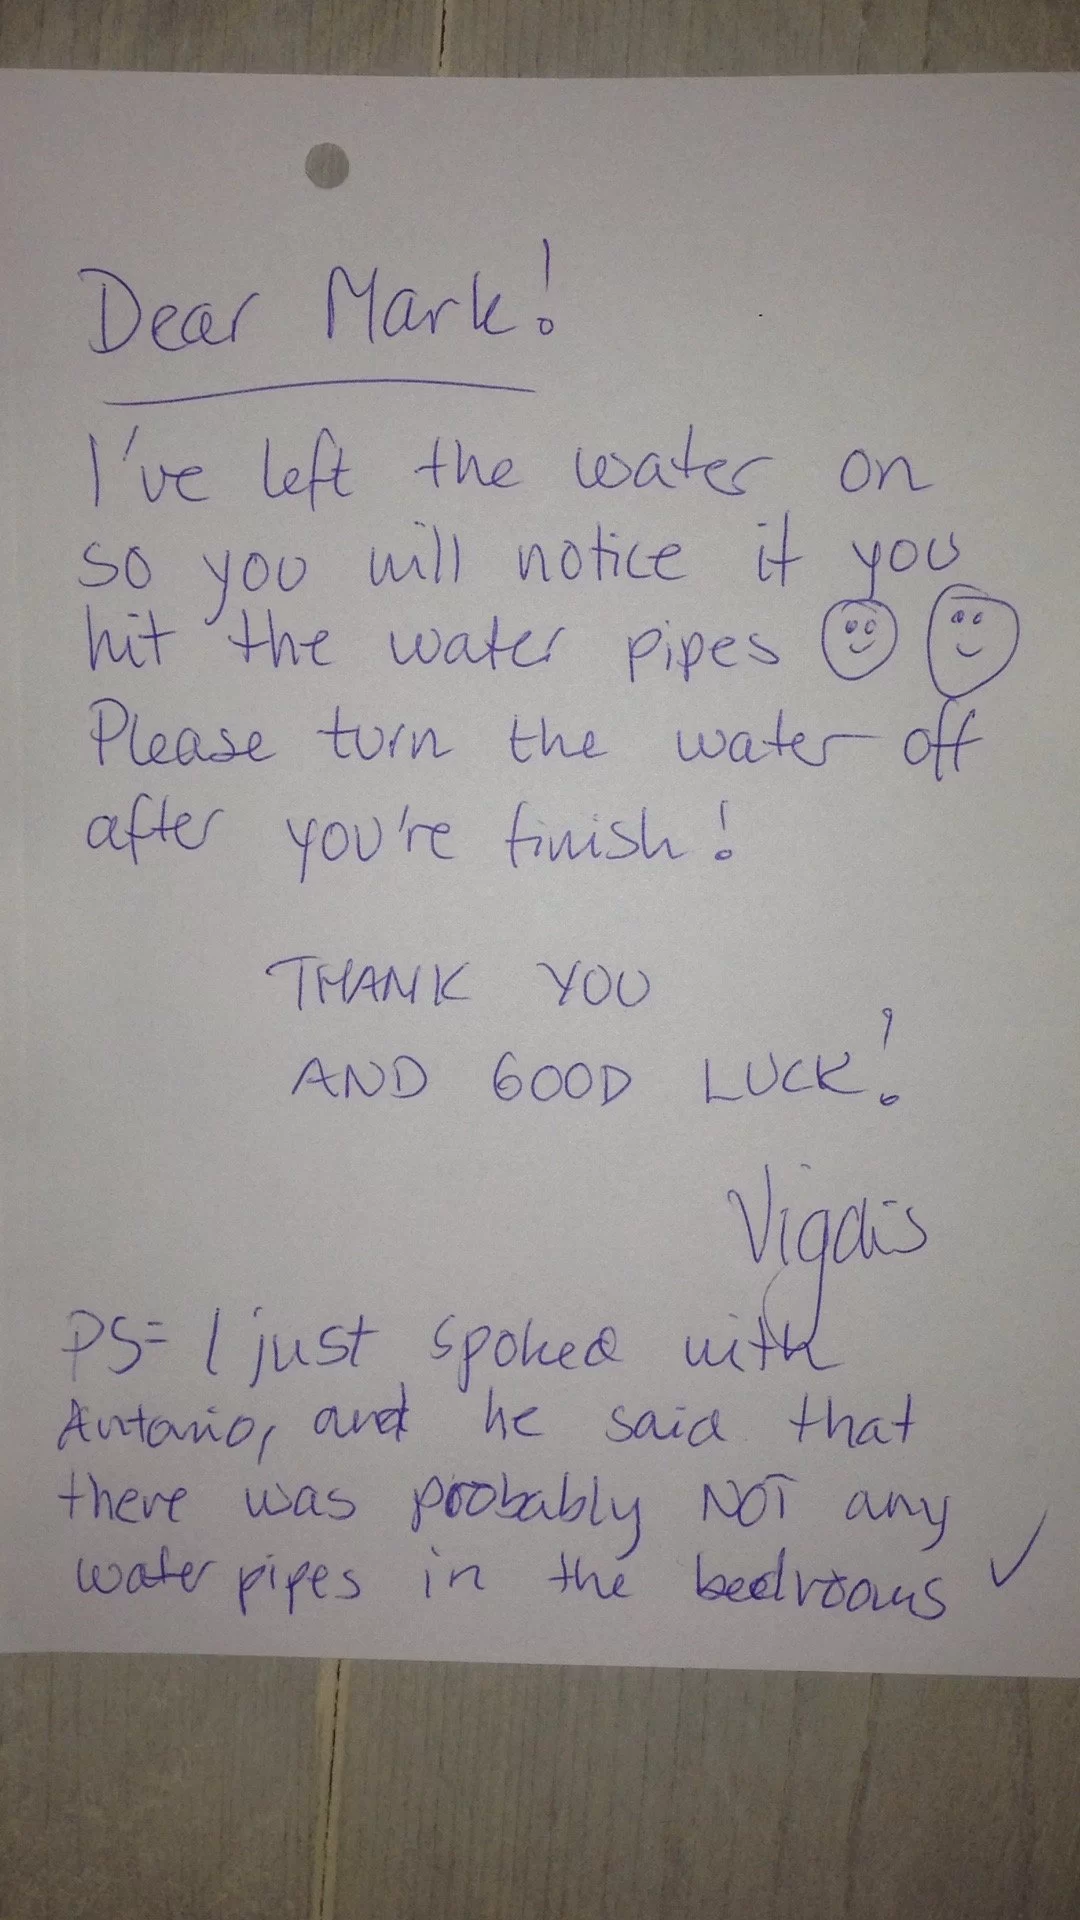 Dear Mark!
I've left the water on
so you will notice if you
hit the water pipes
Please turn the water off
after you're finish!
THANK YOU
AND GOOD LUCK!
Vigdis
PS= I just spoked with
Antonio, and he said that
there was probably NOT any
water pipes in the bedrooms